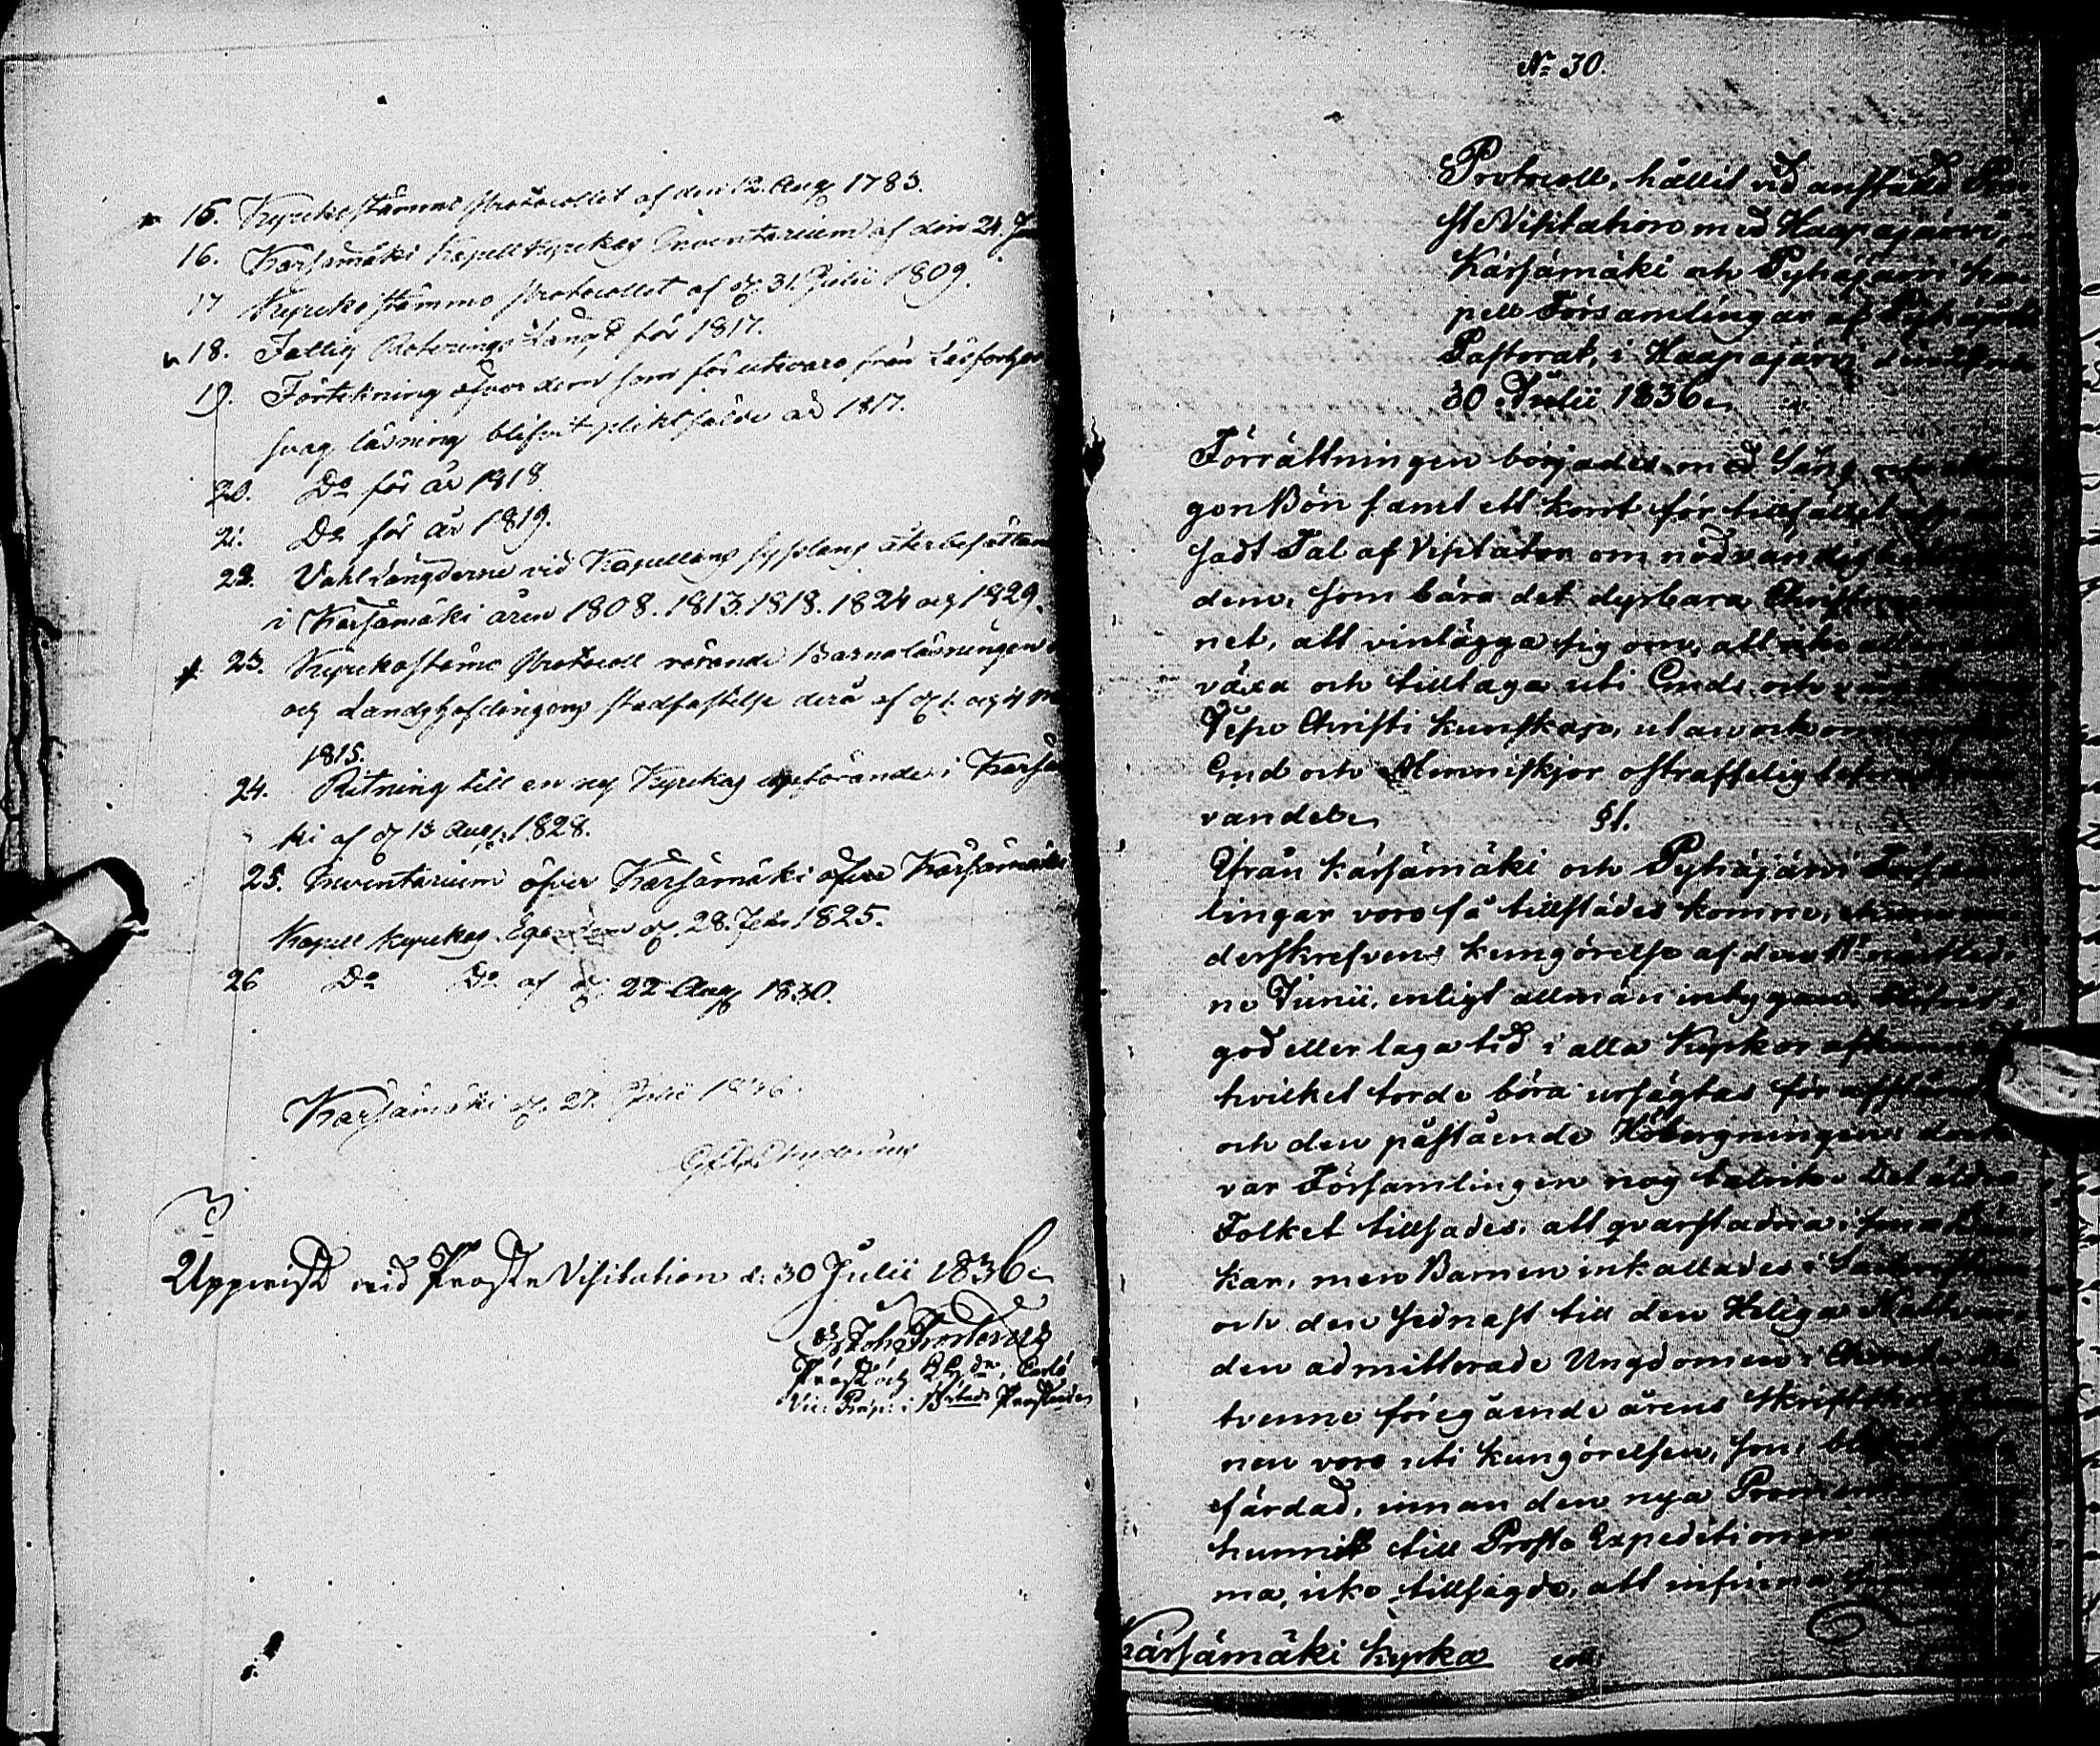 15. Kyrkostämmo Protocollet af den 12. Aug 1783.
16. Kärsämäki Kapell Kyrkas Inventarium af den 24.
17 Kyrko stämmo Protocollet af d. 31. Julii 1809.
18. Fattig Roterings Längd för 1817.
19. Förtekning öfver dem som för utevaro från Läsförhör
svag läsning blifvit pliktfälde år 1817.
20. Do för år 1818
21. Do för år 1819.
22. Vahl Längderne vid Kapellans sysslans återbesättan
i Kärsämäki åren 1808. 1813. 1818. 1824 och 1829.
23. Kyrkostäms Protocoll rörande Barnaläsningen
och Landshöfdingens stadfästelse derå af d.
1815.
24. Ritning till en ny Kyrkas uppförande i Kärsä
ki af d 13 Aug. 1828.
25. Inventarium öfver Kärsämäki öfver Kärsämäki
Kapell kyrkas Egendom d. 28. Feb. 1825.
26 Do Do af d 22 Aug 1830.
Kärsämäki d. 27. Julii 1836.
Uppvist vid Proste Visitation d. 30 Julii 1836
Joh. Frosterus
Prost och
Vic. Præp. i Prosteriet
No 30.
Protocoll, hållit vid anstäld Pro
ste Visitation med Haapajärvi,
Kärsämäki och Pyhäjärvi Ka
pell Församlingar af Pyhäjoki
Pastorat, i Haapajärvi den
30 Julii 1836.
Förrättningen börjades med Sång och
gon Bön samt ett kort för tillfället
sadt Tal af Visitator om nödvändigheten
dem, som bära det dyrbara Christna
net, att vinlägga sig om, att icke allenast
växa och tilltaga uti Guds och vårs Herres
Jesu Christi kunskap, utan ock
Gud och Menniskjor ostraffelig
vandel.
§1.
Ifrån Kärsämäki och Pyhäjärvi Försam
lingar voro få tillstädes komne,
derskrefvens kungörelse af den nästled
ne Junii, enligt allmän intygan, blifvit i
god eller laga tid i alla Kyrkor afkunnad
hvilket torde böra ursägtas för afstånd
och den påstående Höbergningen;
var Församlingen nog talrik. Det äldre
Folket tillsades, att qvarstadna i sina Bän
kar, men Barnen inkallades i Sacristian
och den sednast till den Heliga Nattvar
den admitterade Ungdomen i Choret.
tvenne föregående årens Skriftskole
nen voro uti kungörelsen, som blifvit
färdad, innan den nya
hunnit till Prosta Expeditionen
ma, icke tillsägde, att infinna
Kärsämäki kyrka